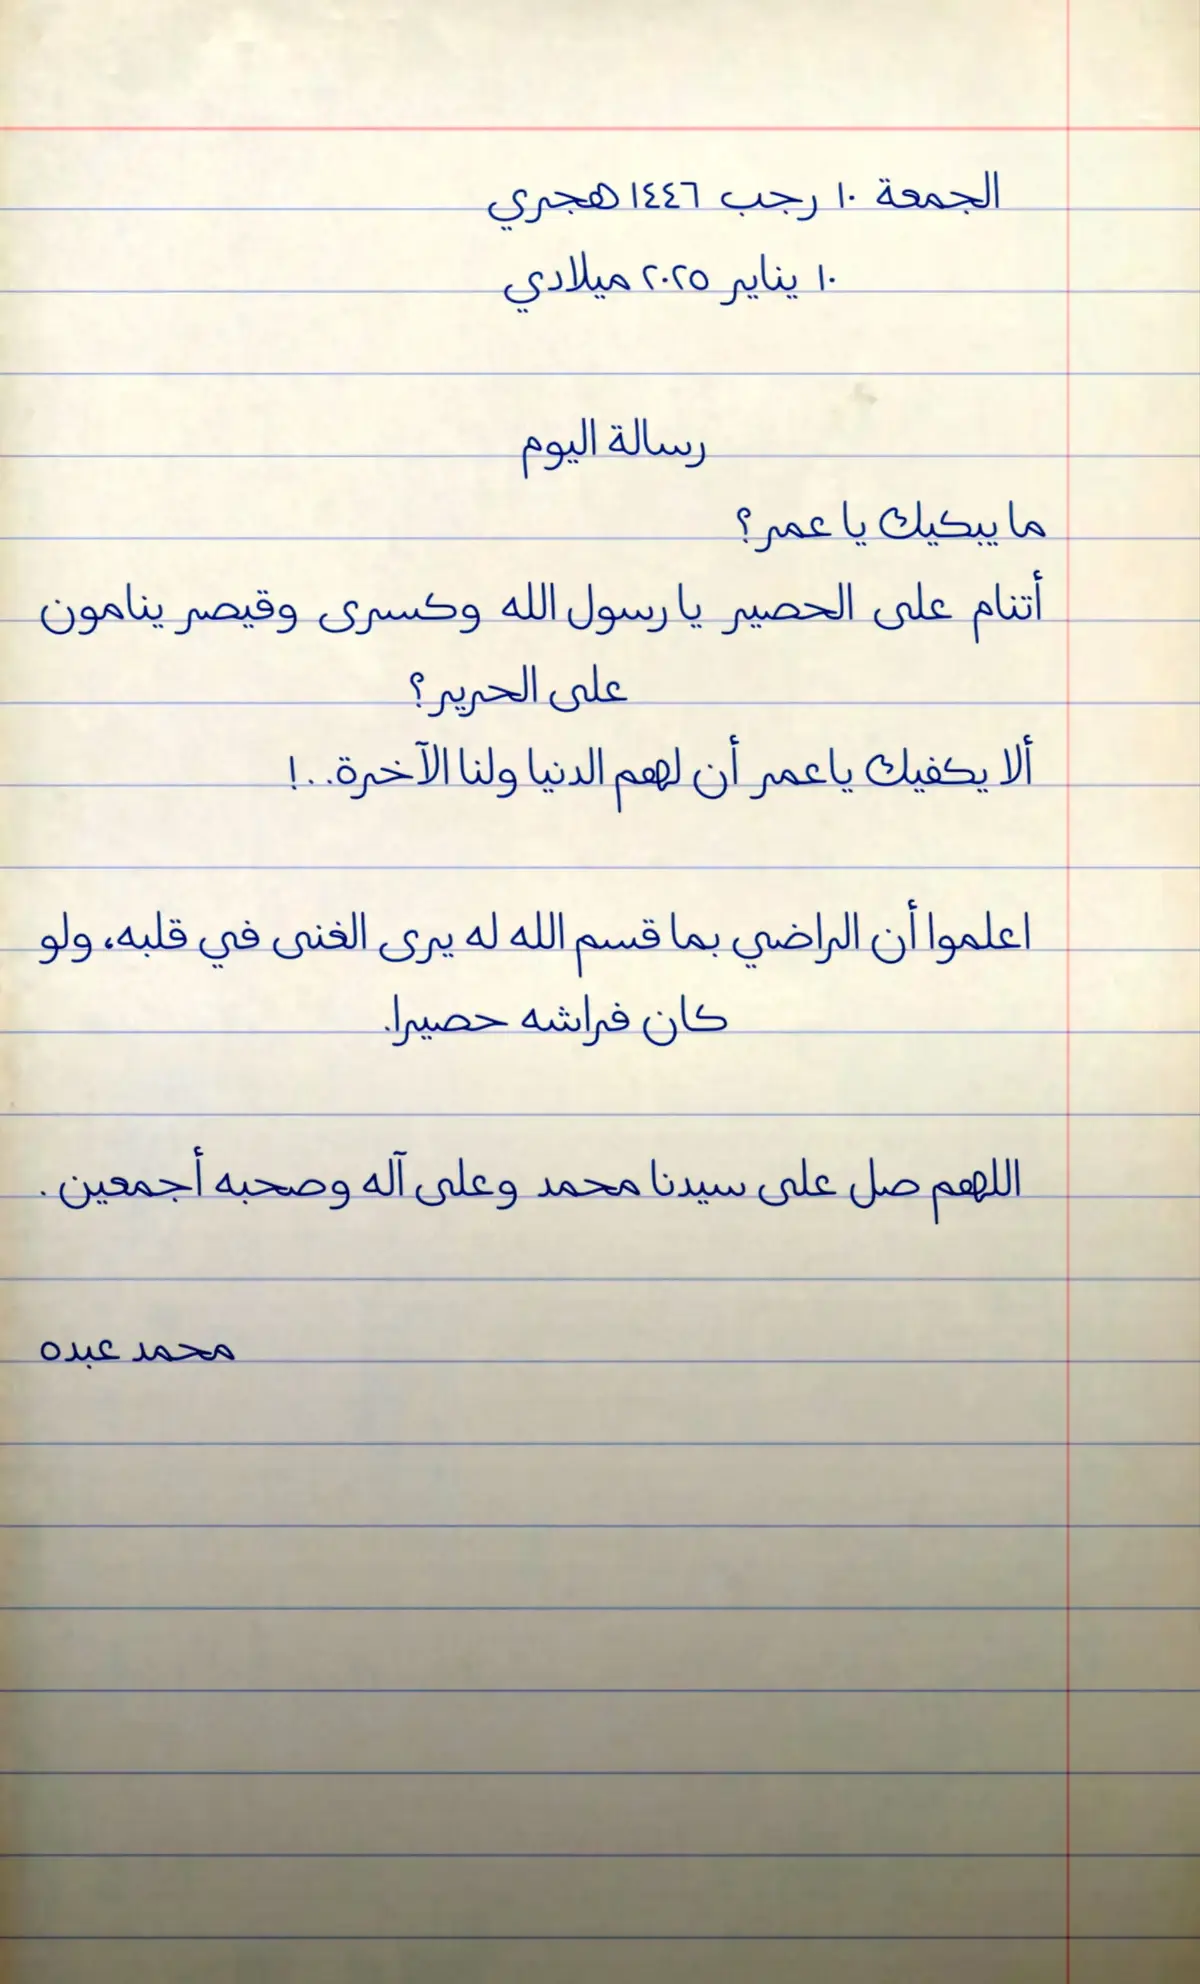 الجمعة ١٠ رجب ١٤٤٦ هجري
١٠ يناير ٢٠٢٥ ميلادي
رسالة اليوم
ما يبكيك يا عمر؟
أتنام على الحصير يا رسول الله وكسرى وقيصر ينامون
على الحرير؟
ألا يكفيك ياعمر أن لهم الدنيا ولنا الآخرة..!
اعلموا أن الراضي بما قسم الله له يرى الغنى في قلبه، ولو
كان فراشه حصيرا.
اللهم صل على سيدنا محمد وعلى آله وصحبه أجمعين.
محمد عبده